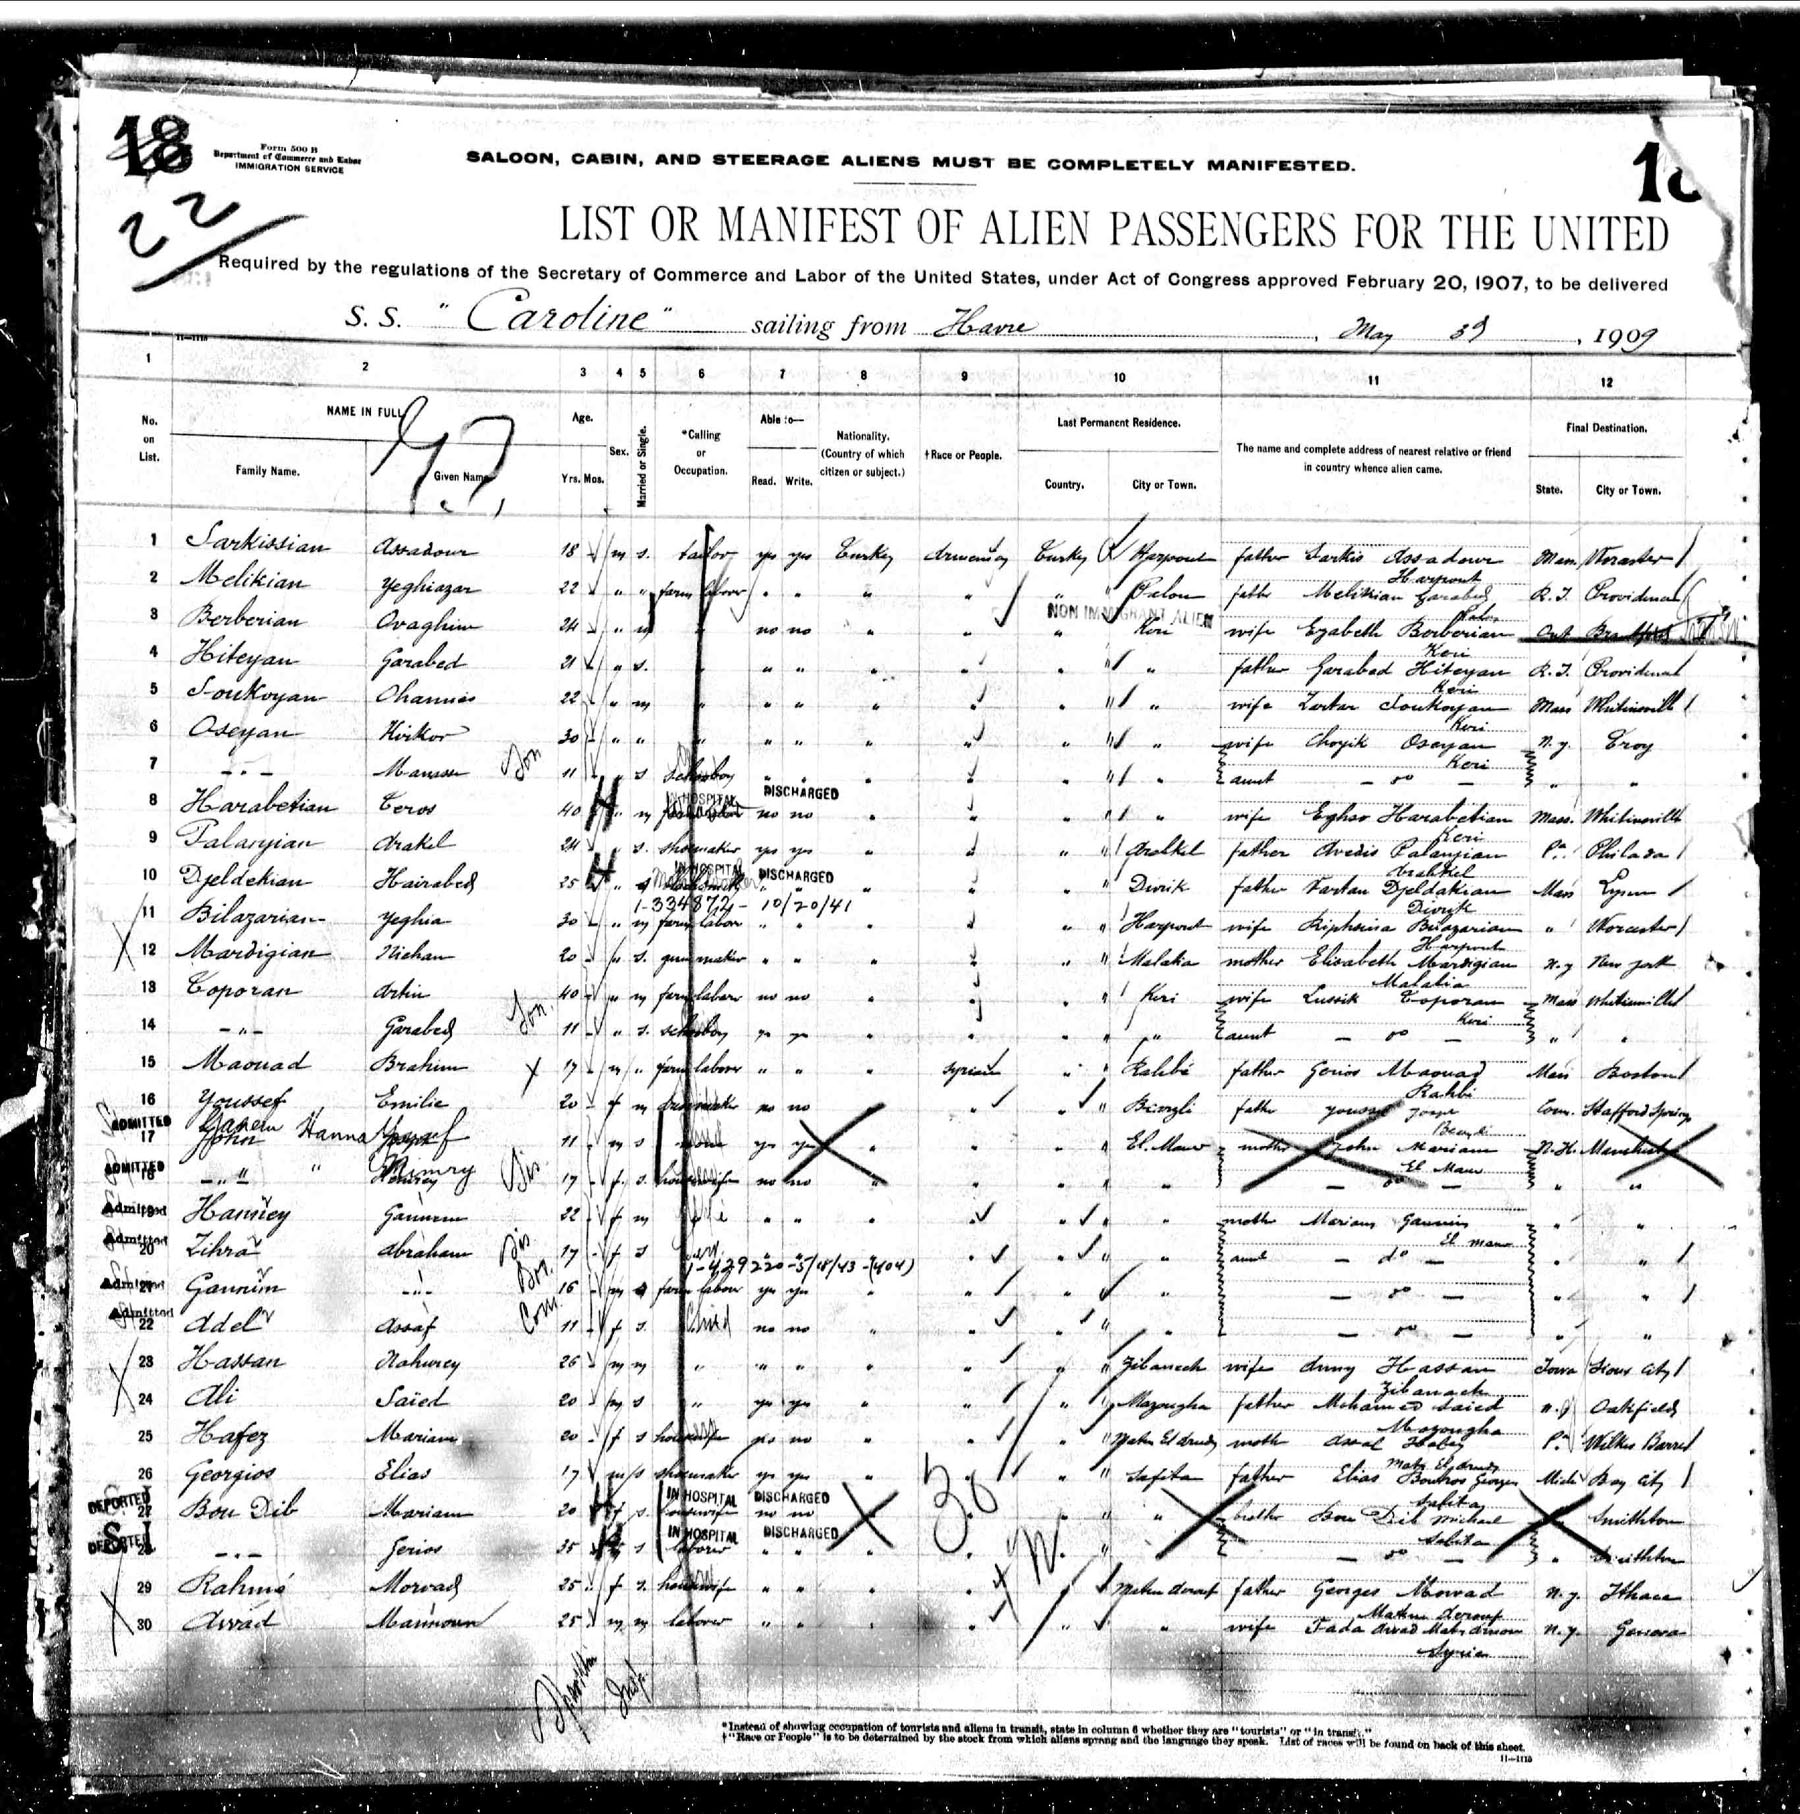 18
Form 500 B
Department of Commerce and Labor
IMMIGRATION SERVICE
SALOON, CABIN, AND STEERAGE ALIENS MUST BE COMPLETELY MANIFESTED.
22
LIST OR MANIFEST OF ALIEN PASSENGERS FOR THE UNITED
Required by the regulations of the Secretary of Commerce and Labor of the United States, under Act of Congress approved February 20, 1907, to be delivered
S. S. "Caroline" sailing from Havre, May 3d, 1909
11—1115
1 2 3 4 5 6 7 8 9 10 11 12
No. on List. NAME IN FULL Family Name. Given Name. Age. Yrs. Mos. Sex. Married or Single. *Calling or Occupation. Able to— Read. Write. Nationality. (Country of which citizen or subject.) †Race or People. Last Permanent Residence. Country. City or Town. The name and complete address of nearest relative or friend in country whence alien came. Final Destination. State. City or Town.
1 Sarkissian Assadour 18 m s. tailor yes yes Turkey Armenian Turkey Harpout father Sarkis Assadour Harpout Mass. Worcester
2 Melikian Yeghiazar 22 " " farm laborer " " " " " Palou father Melikian Garabed Palou R. I. Providence
NON IMMIGRANT ALIEN
3 Berberian Ovaghim 24 " m " no no " " " Keri wife Ezabeth Berberian Keri
4 Hiteyan Garabed 21 " s. " " " " " " father Garabed Hiteyan Keri R. I. Providence
5 Soukoyan Ohannes 22 " m " " " " " " " wife Zartar Soukoyan Keri Mass Whitinsville
6 Oseyan Kirkor 30 " " " " " " " " " wife Choyik Oseyan Keri N. Y. Troy
7 — " — Manasse Son 11 " s schoolboy " " " " " " aunt — do — " "
8 Harabetian Teros 40 " m IN HOSPITAL DISCHARGED no no " " " " wife Eghso Harabetian Keri Mass. Whitinsville
9 Palanjian Arakel 24 " s. shoemaker yes yes " " " Arabkel father Avedis Palanjian Arabkel Pa. Philada
10 Djeldekian Hairabed 25 " IN HOSPITAL DISCHARGED " " " " " Divrik father Vartan Djeldakian Divrik Mass Lynn
1-334872- 10/20/41
11 Bilazarian Yeghia 30 " m farm labor " " " " " Harpout wife Riphsima Bilazarian Harpout " Worcester
12 Mardigian Nichan 20 " s. " " " " " Malatia mother Elisabeth Mardigian Malatia N. Y New York
13 Toporan Artin 40 " m farm laborer no no " " " Keri wife Lussik Toporan Keri Mass Whitinsville
14 — " — Garabed Son. 11 " s. schoolboy yes yes " " " " aunt — do — " "
15 Maouad Brahim 17 m " farm laborer " " " Syrian " Rahbé father Gerios Maouad Rahbi Mass Boston
16 Youssef Emilie 20 f m dressmaker no no " " " father Youssef Conn. Stafford Springs
ADMITTED 17 John Hanna Youssef 11 m s none yes yes " " " El. Maur mother John Mariam El Maur N. H. Manchester
ADMITTED 18 — " — " Sis. 17 f. s. housewife no no " " " " — do — " "
Admitted 19 Hanney Gannum 22 f m " " " " " " mother Mariam Gannum El Maur " "
Admitted 20 Zihra Abraham Sis. 17 f s " " " " " aunt — do — " "
1-429220-5/18/43-(404)
Admitted 21 Gannum — " — Bro. 16 m s farm labour yes yes " " " " — do — " "
Admitted 22 Adel Assaf Cous. 11 f s. Child no no " " " " — do — " "
23 Hassan 26 m m " " " " " " Zibanech wife Hassan Zibanach Iowa Sioux City
24 Ali Saïed 20 m s " yes yes " " " Mazougha father Mohamed Saied Mazougha N. J Oakfield
25 Hafez Mariam 20 f s housewife yes no " " " mother Assaf Pa. Wilkes Barre
26 Georgios Elias 17 m s shoemaker yes yes " " " Safita father Elias Boutros Georges Safita Mich Bay City
DEPORTED 27 Bou Dib Mariam 20 f s. IN HOSPITAL DISCHARGED housewife no no " " " " brother Bou Dib Michael Safita Smithton
DEPORTED 28 — " — Gerios 25 s IN HOSPITAL DISCHARGED laborer " " " " " — do — " Smithton
29 Rahmé Morvad 25 f s. housewife " " " " " father Georges Mowad N. Y. Ithaca
30 Awad Maimoun 25 m m laborer " " " " " " wife Fada Awad Syria N. Y. Geneva
*Instead of showing occupation of tourists and aliens in transit, state in column 6 whether they are "tourists" or "in transit."
†"Race or People" is to be determined by the stock from which aliens sprang and the language they speak. List of races will be found on back of this sheet.
11—1115